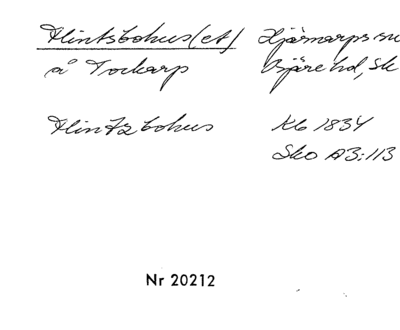 Flintsbohus(et) Hjärnarps sn
å Tockarp Bjäre hd, Sk
Flintzbohus Kb 1834
Sko A3:113
Nr 20212